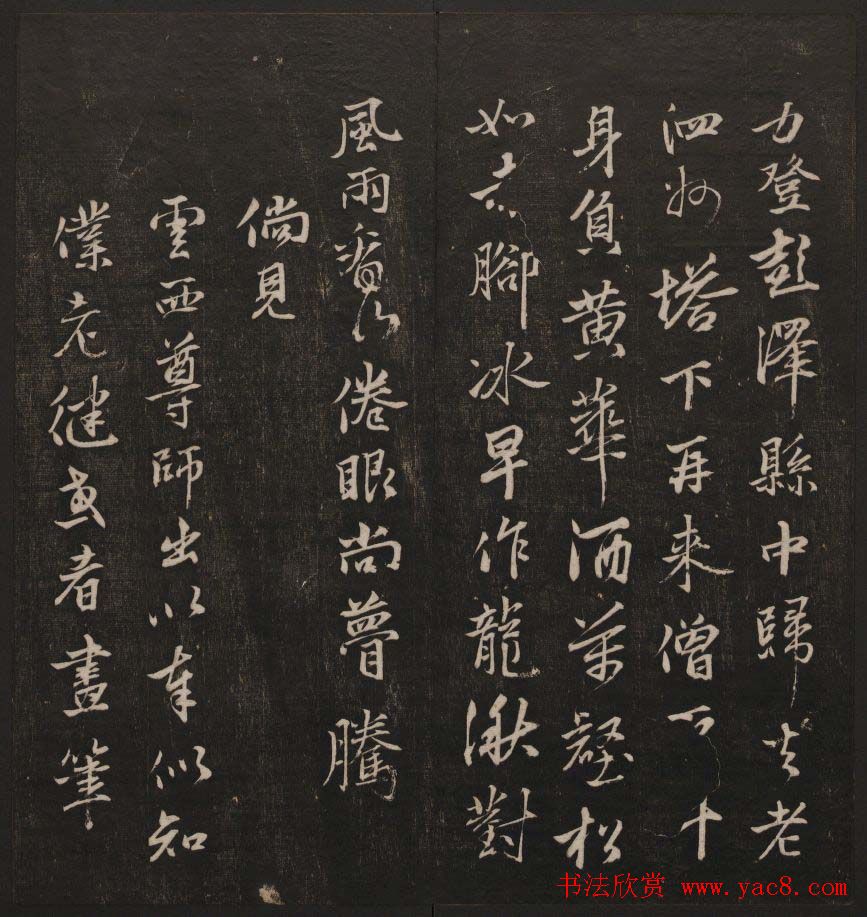 力登彭澤縣中歸去老
泗州塔下再來僧百千
身負黄華酒萬壑松
如赤腳冰早作龍湫對
風雨看山倦眼尚瞢騰
倘見
雲西尊師出以奉似知
僕老健者畫筆
书法欣赏 www.yac8.com